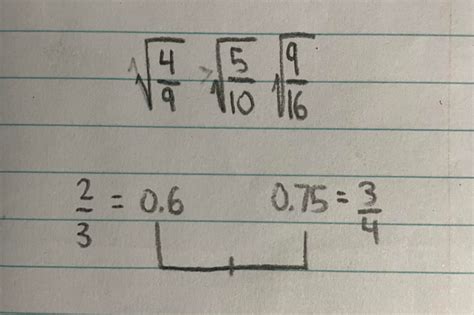 √4/9 √5/10 √9/16
2/3 = 0.6 0.75 = 3/4